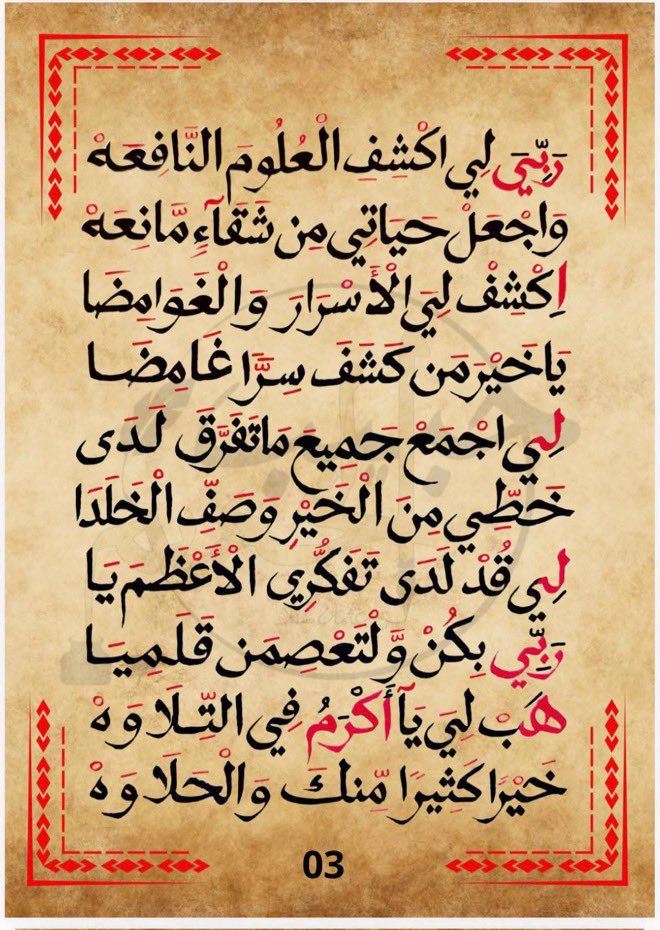 رَبِّيَ لِي اكْشِفِ الْعُلُومَ النَّافِعَهْ
وَاجْعَلْ حَيَاتِي مِن شَقَآءٍ مَّانِعَهْ
اِكْشِفْ لِيَ الْأَسْرَارَ وَالْغَوَامِضَا
يَاخَيْرَ مَن كَشَفَ سِرًّا غَامِضَا
لِيَ اجْمَعْ جَمِيعَ مَاتَفَرَّقَ لَدَى
خَطِّي مِنَ الْخَيْرِ وَصَفِّ الْخَلَدَا
لِي قُدْ لَدَى تَفَكُّرِي الْأَعْظَمَ يَا
رَبِّي بِكُنْ وَّلْتَعْصِمَن قَلَمِيَا
هَبْ لِيَ يَآ أَكْرَمُ فِي التِّلَاوَهْ
خَيْرًا كَثِيرًا مِّنكَ وَالْحَلَاوَهْ
03